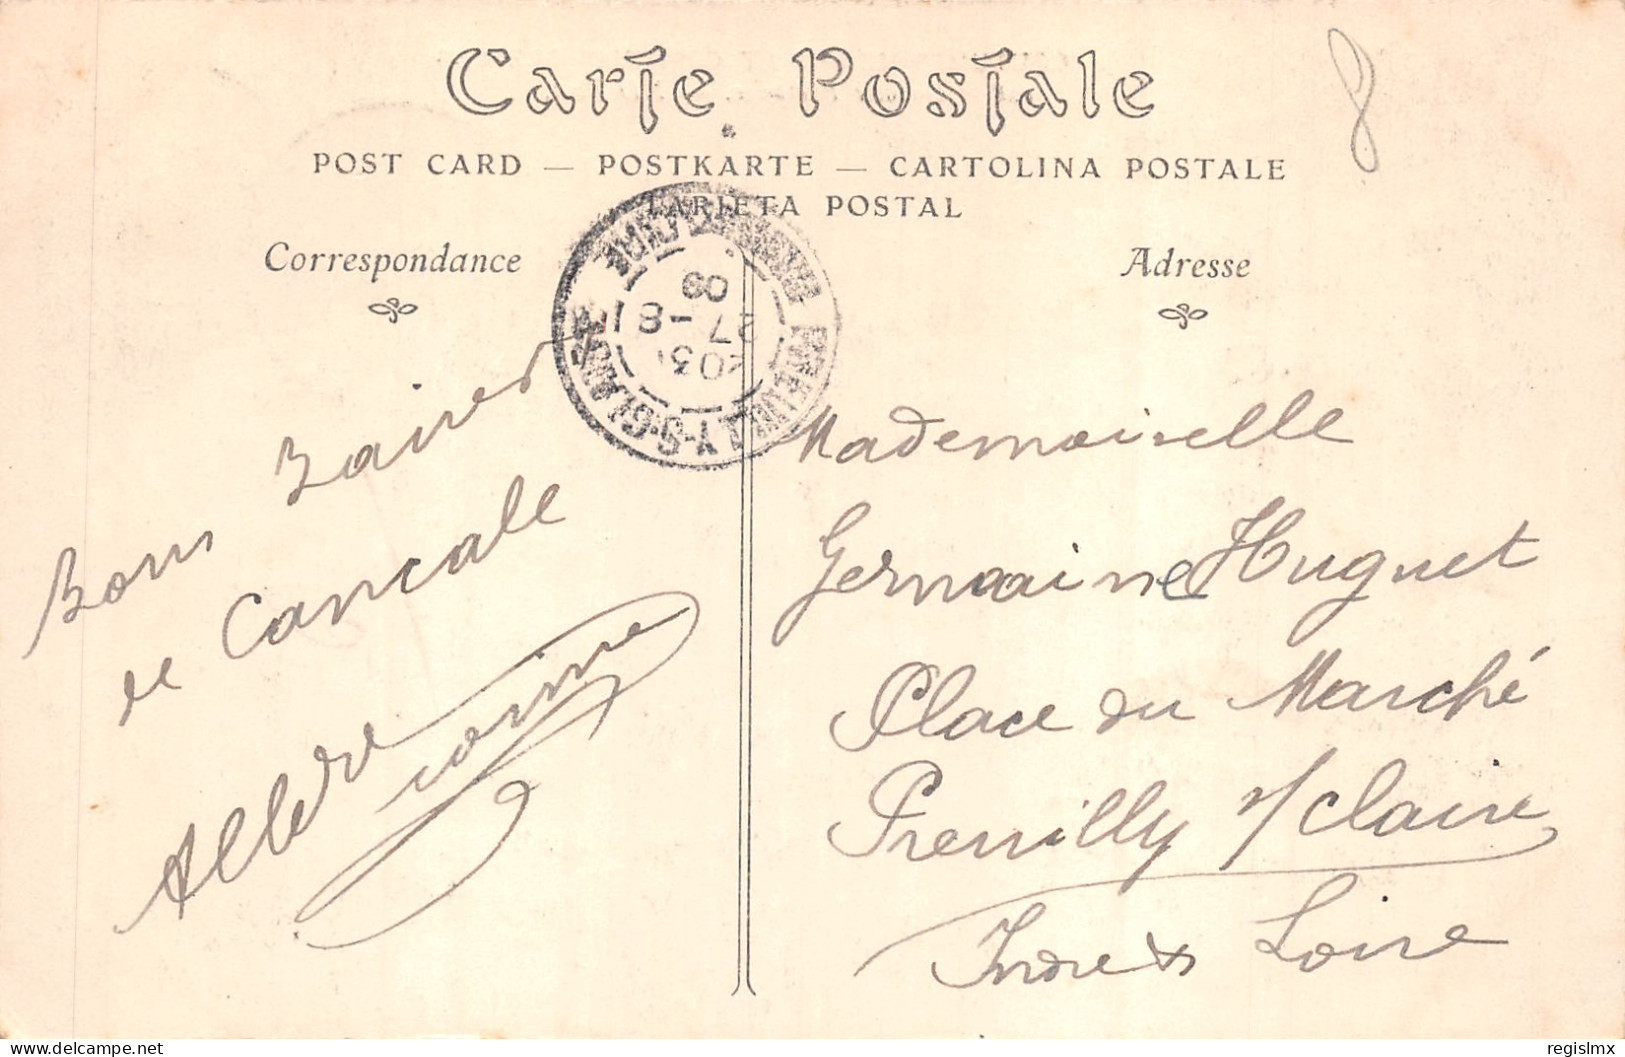 Carte Postale
POST CARD — POSTKARTE — CARTOLINA POSTALE
TARJETA POSTAL
Correspondance
Adresse
8
Bons Baisers
de Cancale
Mademoiselle
Germaine Huguet
Place du Marché
Preuilly s/ Claise
Indre & Loire
PREUILLY-S-CLAISE
INDRE-ET-LOIRE
27 - 8
09
delcampe.net
regislmx